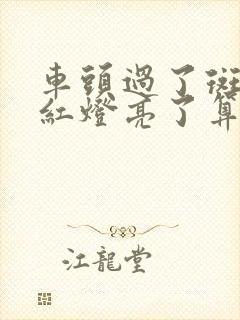 車頭過了斑
紅燈亮了算
江龍堂